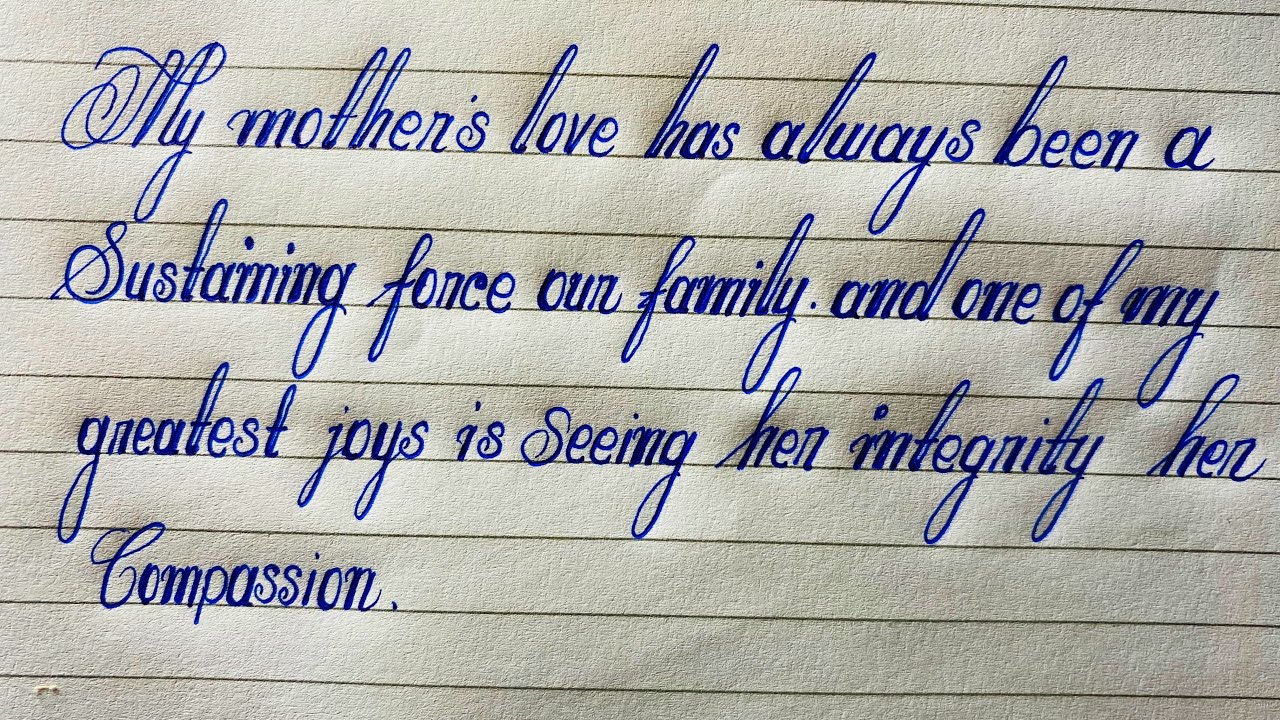 My mother's love has always been a
Sustaining force our family. and one of my
greatest joys is Seeing her integrity her
Compassion.